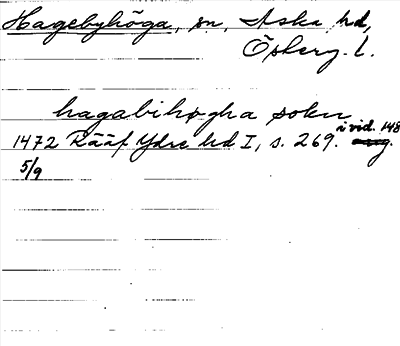 Hagebyhöga, sn, Aska hd,
Österg. l.
hagabihøgha sokn
1472 Rääf Ydre hd I, s. 269. i vid. 148
5/9